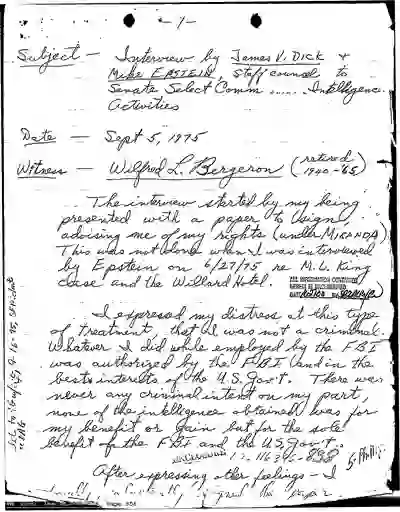 - 1 -
Subject - Interview by James V. Dick +
Mike EPSTEIN, Staff counsel to
Senate Select Comm ..... Intelligence
Activities
Date - Sept 5, 1975
Witness - Wilfred L. Bergeron (retired
1940-65)
The interview started by my being
presented with a paper to sign
advising me of my rights (under MIRANDA)
This was not done when I was interviewed
by Epstein on 6/27/75 re M. L. King
case and the Willard Hotel.
ALL INFORMATION CONTAINED
I expressed my distress at this type
of treatment, that I was not a criminal.
Whatever I did while employed by the FBI
was authorized by the FBI and in the
best interests of the U.S. Gov't. There was
never any criminal intent on my part,
none of the intelligence obtained was for
my benefit or gain but for the sole
benefit of the FBI and the U.S. Gov't.
62-116395-898
After expressing other feelings - I
signed the paper